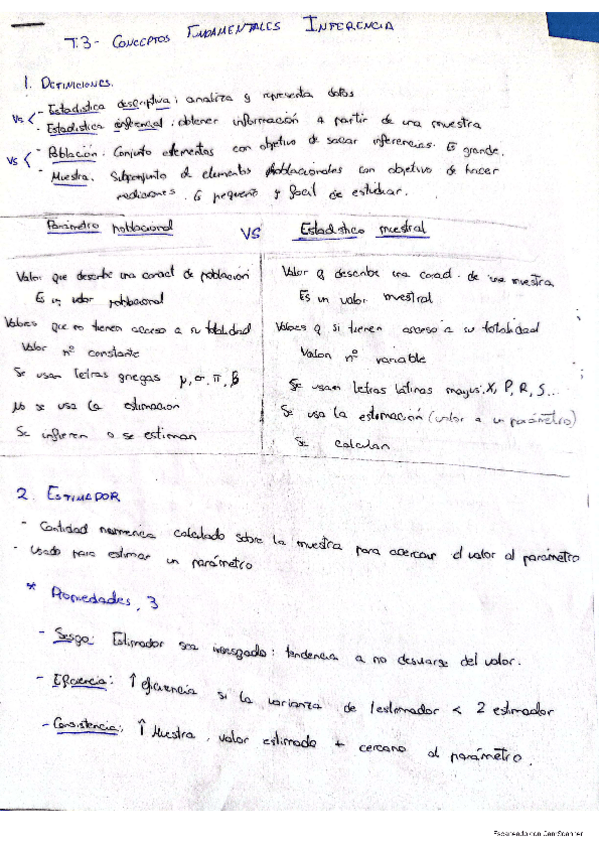 T.3- CONCEPTOS FUNDAMENTALES INFERENCIA
1. DEFINICIONES.
vs < - Estadística descriptiva: analiza y representa datos
- Estadística inferencial: obtener información a partir de una muestra
vs < - Población: Conjunto elementos con objetivo de sacar inferencias. Es grande.
- Muestra. Subconjunto de elementos poblacionales con objetivo de hacer
mediciones. Es pequeño y fácil de estudiar.
Parámetro poblacional VS Estadístico muestral
Valor que describe una caract de población
Es un valor poblacional
Valores que no tienen acceso a su totalidad
Valor nº constante
Se usan letras griegas μ, σ, π, β
No se usa la estimación
Se infieren o se estiman
Valor q describe una caract. de una muestra
Es un valor muestral
Valores q si tienen acceso a su totalidad
Valor nº variable
Se usan letras latinas mayus: X, P, R, S...
Se usa la estimación (valor a un parámetro)
Se calculan
2. ESTIMADOR
- Cantidad numerica calculado sobre la muestra para acercar el valor al parámetro
- Usado para estimar un parámetro
* Propiedades, 3
- Sesgo: Estimador sea insesgado: tendencia a no desviarse del valor.
- Eficiencia: ↑ eficiencia si la varianza de 1 estimador < 2 estimador
- Consistencia: ↑ Muestra, valor estimado + cercano al parámetro.
Escaneado con CamScanner